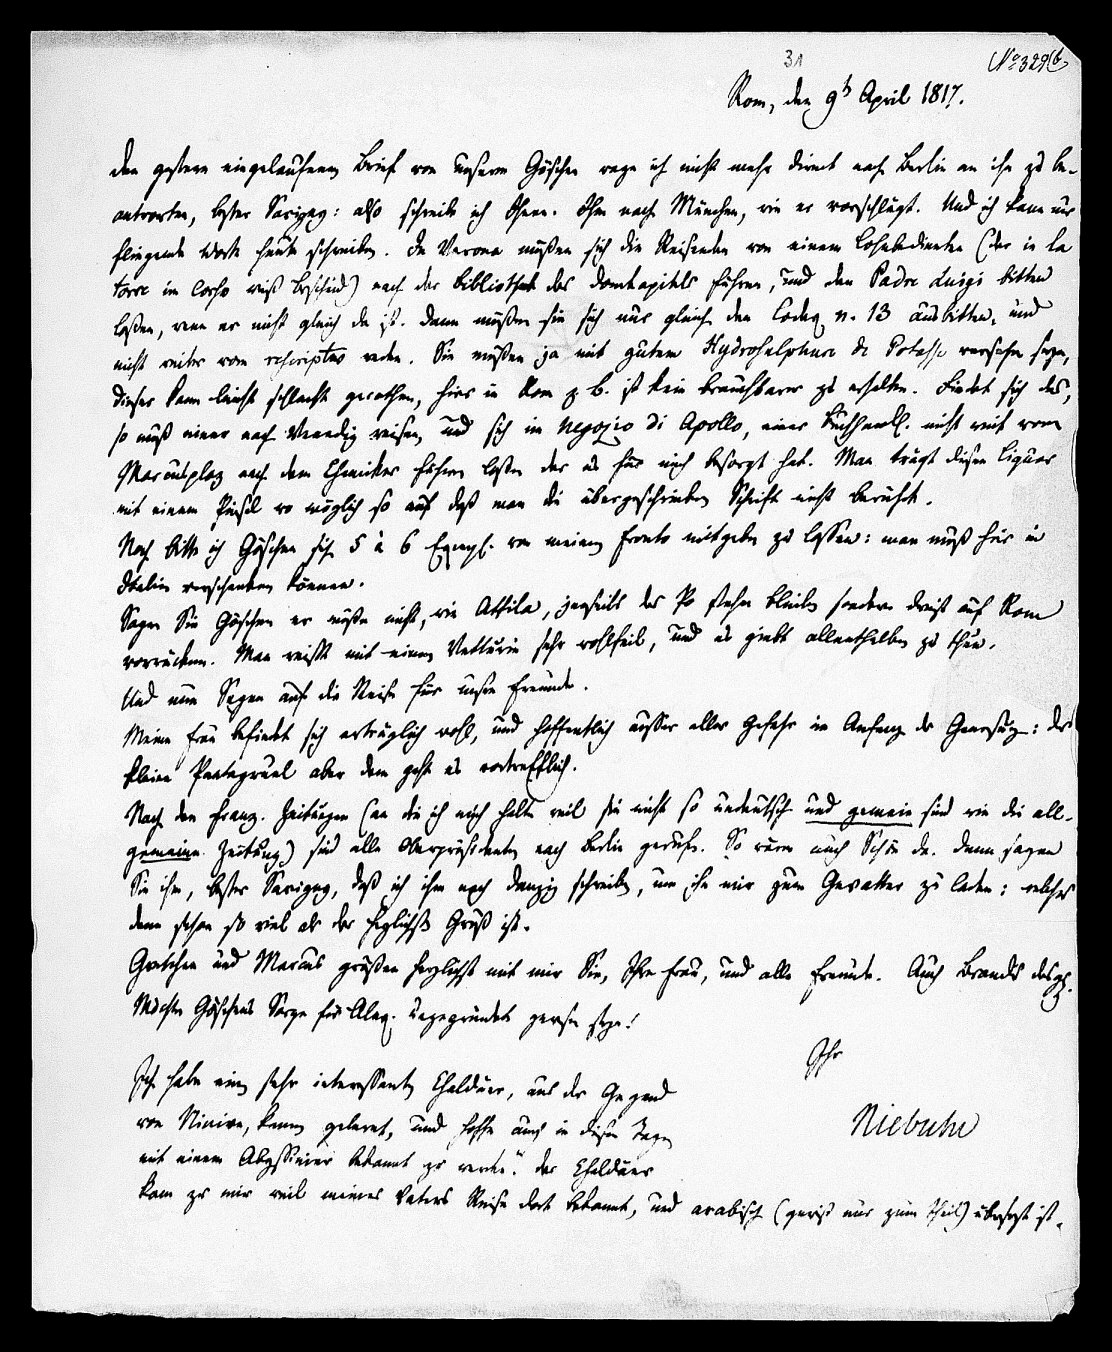 31
No 329/6
Rom, den 9ten April 1817.
Den gestern eingelaufenen Brief von unserm Göschen wage ich nicht mehr direct nach Berlin an ihn zu be-
antworten, bester Savigny: also schreibe ich Ihnen. Ihm nach München, wie er vorschlägt. Und ich kann nur
fliegende Worte heute schreiben. In Verona müßen sich die Reisenden von einem Lohnbedienten (der in la
torre im Corso weiß Bescheid) nach der Bibliothek des Domkapitels führen, und den Padre Luigi bitten
laßen, wenn er nicht gleich da ist. Dann müßen sie sich nur gleich den Codex n. 13 ausbitten, und
nicht weiter vom rescriptus reden. Sie müßen ja mit gutem Hydrosulphure de Potasse versehen seyn,
dieser kann leicht schlecht gerathen, hier in Rom z. B. ist kein brauchbarer zu erhalten. Findet sich das,
so muß einer nach Venedig reisen, und sich im Negozio di Apollo, einer Buchhandl. nicht weit vom
Marcusplaz nach dem Chemiker führen laßen der es für mich besorgt hat. Man trägt diesen Liquor
mit einem Pinsel wo möglich so auf daß man die übergeschriebene Schrift nicht berührt.
Noch bitte ich Göschen sich 5 à 6 Exempl. von meinem Fronto mitgeben zu lassen: man muß hier in
Italien verschenken können.
Sagen Sie Göschen er müße nicht, wie Attila, jenseits des Po stehen bleiben sondern dreist auf Rom
vorrücken. Man reißt mit einem Vetturin sehr wohlfeil, und es giebt allenthalben zu thun.
Und nun Segen auf die Reise für unsre Freunde.
Meine Frau befindet sich erträglich wohl, und hoffentlich ausser aller Gefahr im Anfang der Genesung: der
kleine Pantagruel aber dem geht es vortrefflich.
Nach den franz. Zeitungen (an die ich mich halte weil sie nicht so undeutsch und gemein sind wie die all-
gemeine Zeitung) sind alle Oberpräsidenten nach Berlin gerufen. So wäre auch Schön da. Dann sagen
Sie ihm, bester Savigny, daß ich ihm nach Danzig schreibe, um ihn mir zum Gevatter zu laden: welches
denn schon so viel als der herzlichste Gruß ist.
Gretchen und Marcus grüßen herzlichst mit mir Sie, Ihre Frau, und alle Freunde. Auch Brandis desgl.
Möchte Göschens Sorge für Alex. ungegründet gewesen seyn!
Ihr
Niebuhr
Ich habe einen sehr interessanten Chaldäer, aus der Gegend
von Ninive, kennen gelernt, und hoffe auch in diesen Tagen
mit einem Abyssinier bekannt zu werden. Der Chaldäer
kam zu mir weil meines Vaters Reise dort bekannt, und arabisch (gewiß nur zum Theil) übersezt ist.